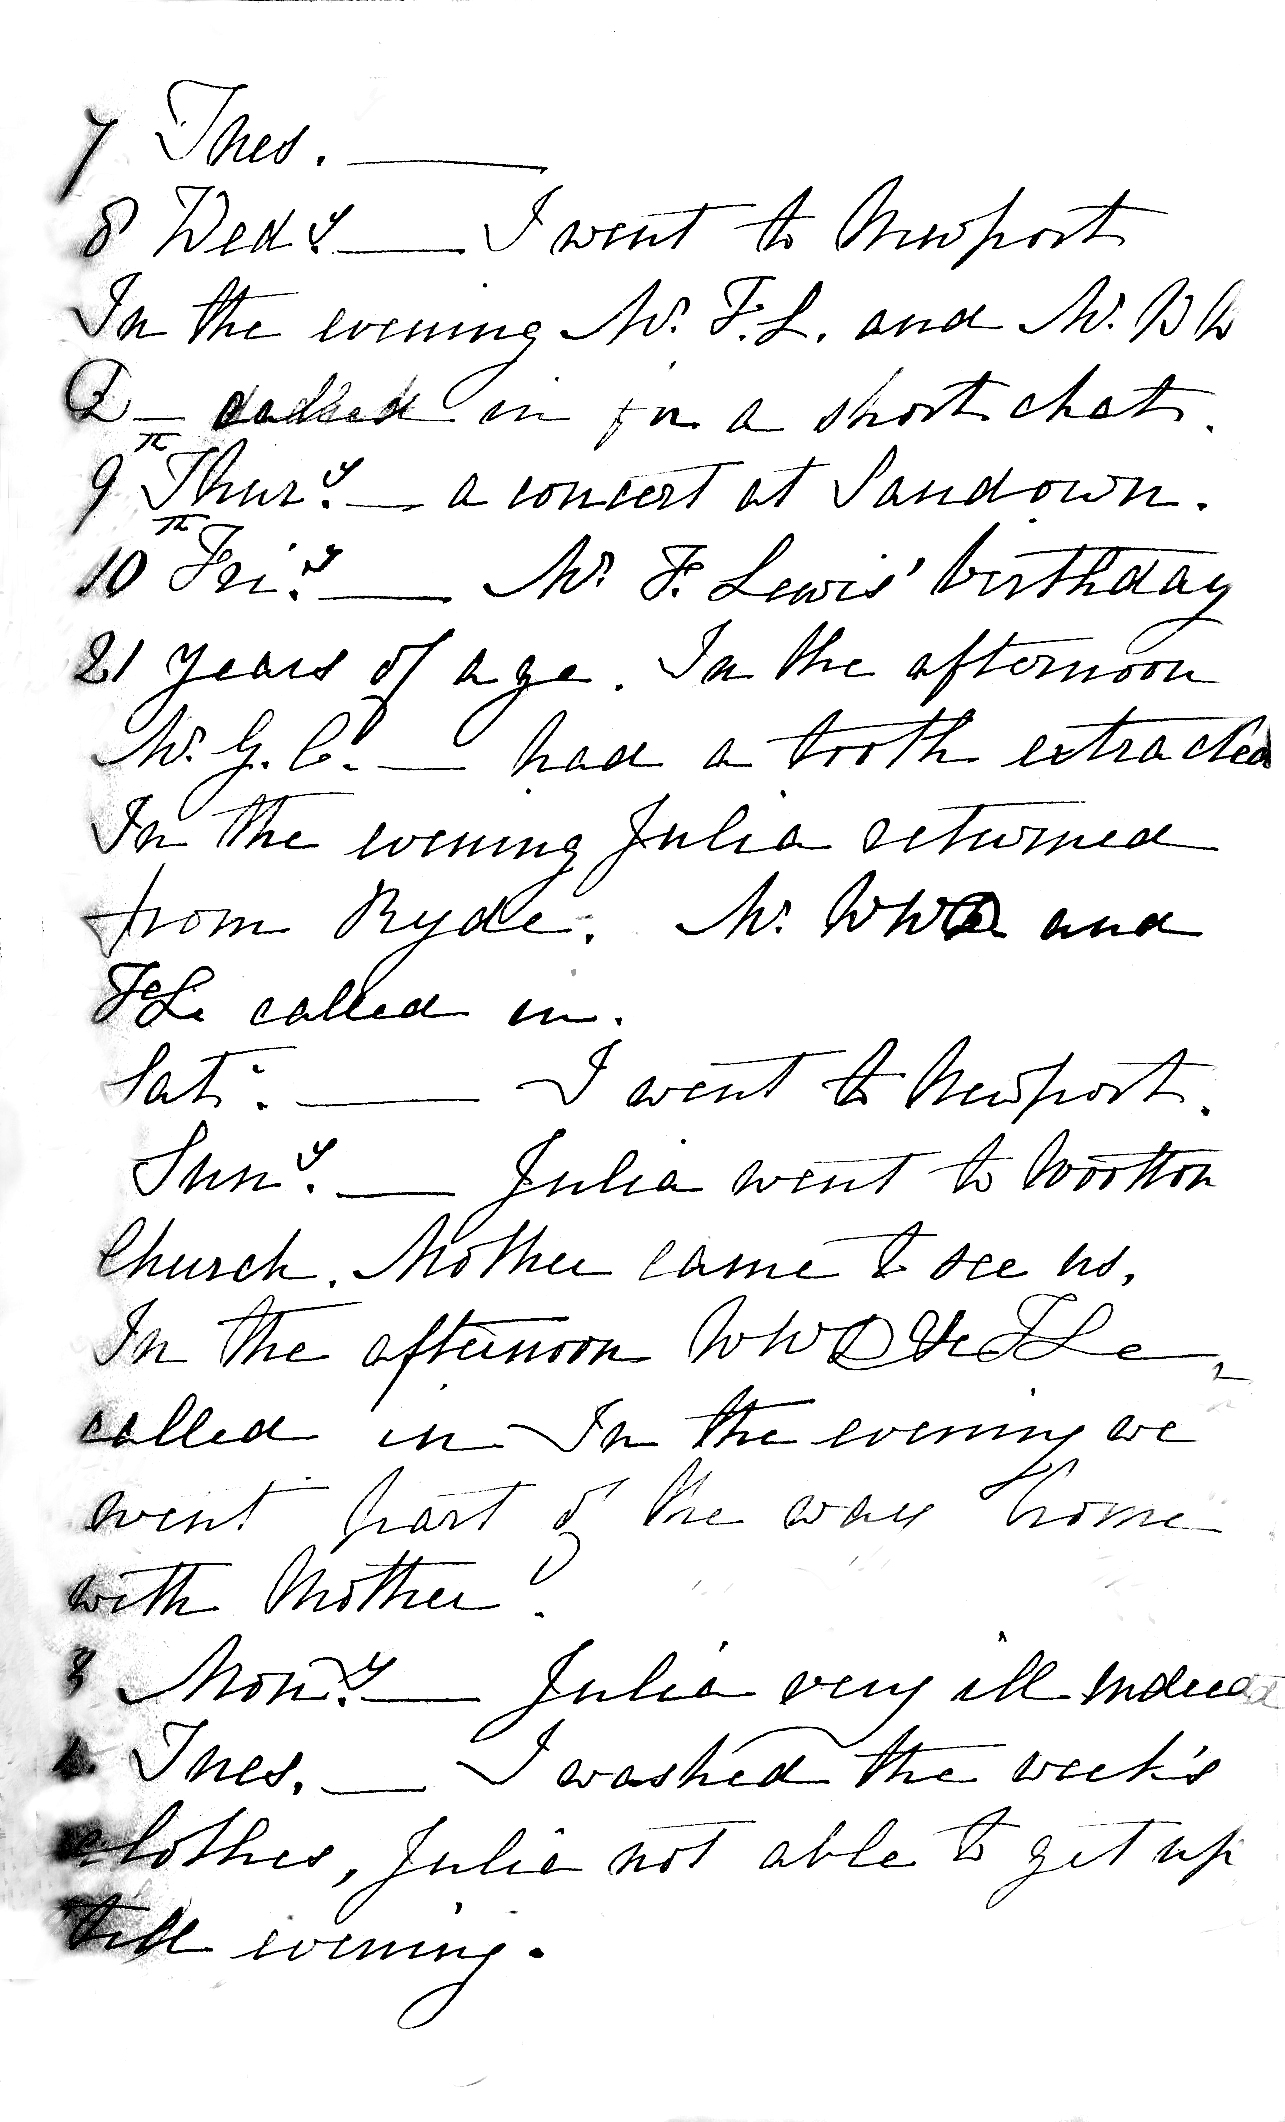 7 Tues. —
8 Wed.y — I went to Newport
In the evening Mr. F. L. and Mr.
— called in for a short chat.
9th Thur.y — a concert at Sandown.
10th Fri.y — Mr F. Lewis' birthday
21 years of age. In the afternoon
Mr. G. C. — had a tooth extracted
In the evening Julia returned
from Ryde. Mr. and
called in.
Sat. — I went to Newport.
Sun.y — Julia went to Wootton
Church. Mother came to see us.
In the afternoon
called in In the evening we
went part of the way home
with Mother.
Mon.y — Julia very ill indeed
Tues. — I washed the week's
clothes, Julia not able to get up
till evening.